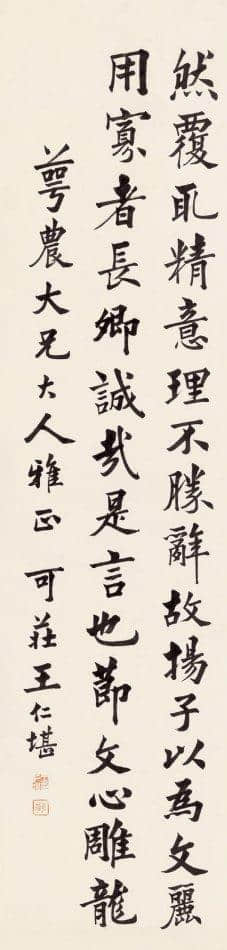 然覆取精意理不勝辭故揚子以為文麗
用寡者長卿誠哉是言也節文心雕龍
萼農大兄大人雅正 可莊王仁堪